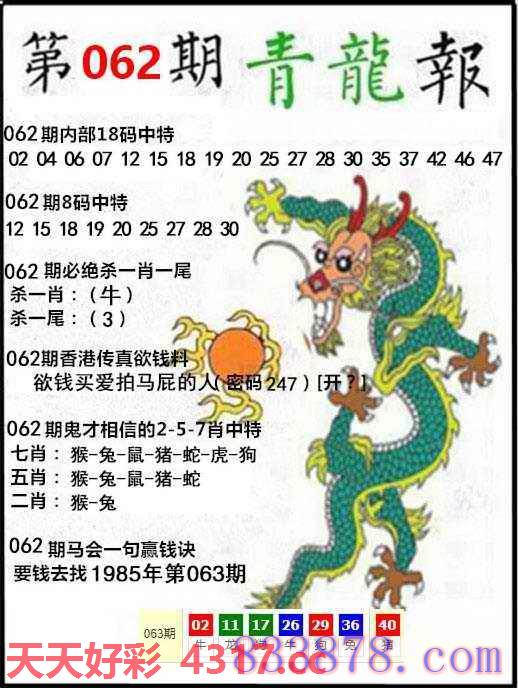 第062期 青龍報
062期内部18码中特
02 04 06 07 12 15 18 19 20 25 27 28 30 35 37 42 46 47
062期8码中特
12 15 18 19 20 25 27 28 30
062期必绝杀一肖一尾
杀一肖：（牛）
杀一尾：（3）
062期香港传真欲钱料
欲钱买爱拍马屁的人（密码247）[开？]
062期鬼才相信的2-5-7肖中特
七肖：猴-兔-鼠-猪-蛇-虎-狗
五肖：猴-兔-鼠-猪-蛇
二肖：猴-兔
062期马会一句赢钱诀
要钱去找1985年第063期
063期 02 11 17 26 29 36 40
牛 龙 牛 狗 兔 猪
天天好彩 4317.cc
838878.com